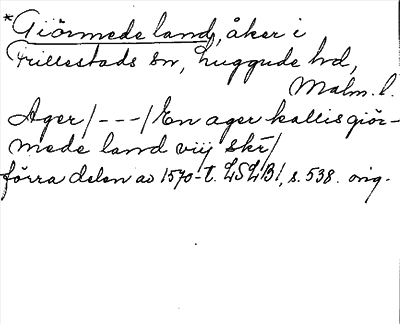 *Giörmede land, åker i
Frillestads sn, Luggude hd,
Malm. l.
Ager /---/ En ager kallis giör-
mede land viij skr/
förra delen av 1570-t. LSLB1, s. 538. orig.